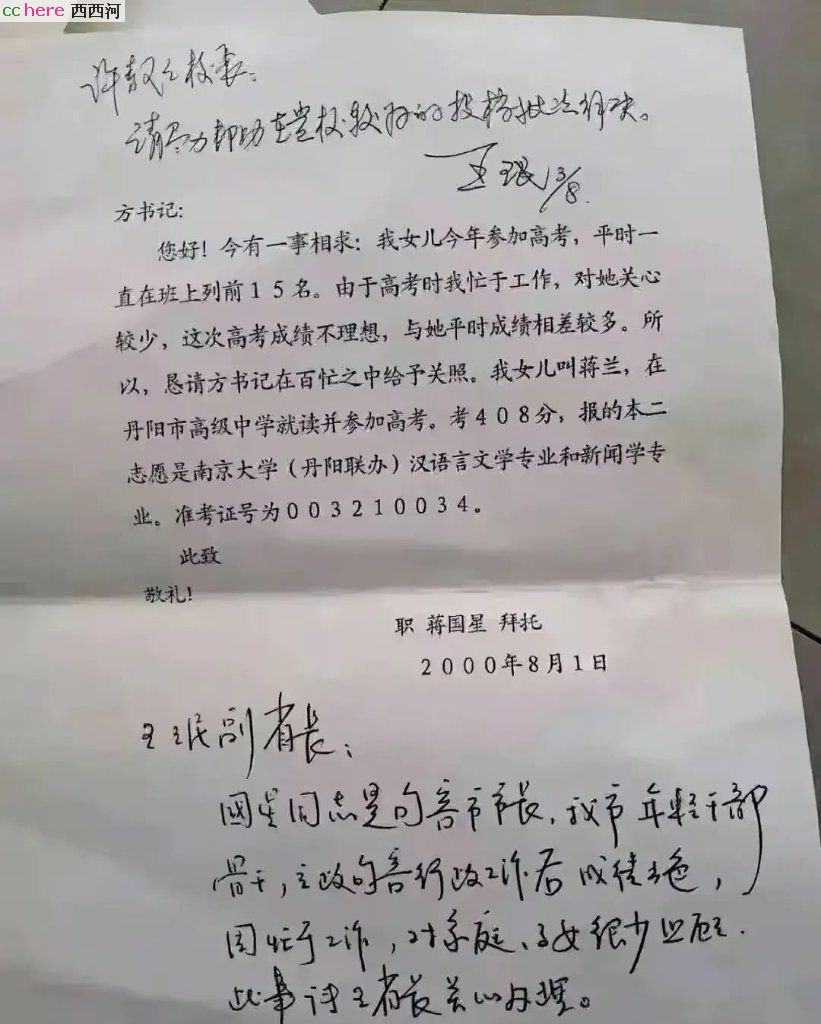 cchere 西西河
许敖敖校长：
请尽力帮助在贵校较好的投档批次解决。
王珉 13/8.
方书记：
您好！今有一事相求：我女儿今年参加高考，平时一
直在班上列前15名。由于高考时我忙于工作，对她关心
较少，这次高考成绩不理想，与她平时成绩相差较多。所
以，恳请方书记在百忙之中给予关照。我女儿叫蒋兰，在
丹阳市高级中学就读并参加高考。考408分，报的本二
志愿是南京大学（丹阳联办）汉语言文学专业和新闻学专
业。准考证号为003210034。
此致
敬礼！
职 蒋国星 拜托
2000年8月1日
王珉副省长：
國星同志是句容市市长，我市年轻干部
骨干，主政句容行政工作后成绩出色，
因忙于工作，对家庭、子女很少照顾.
此事请王省长关心办理。